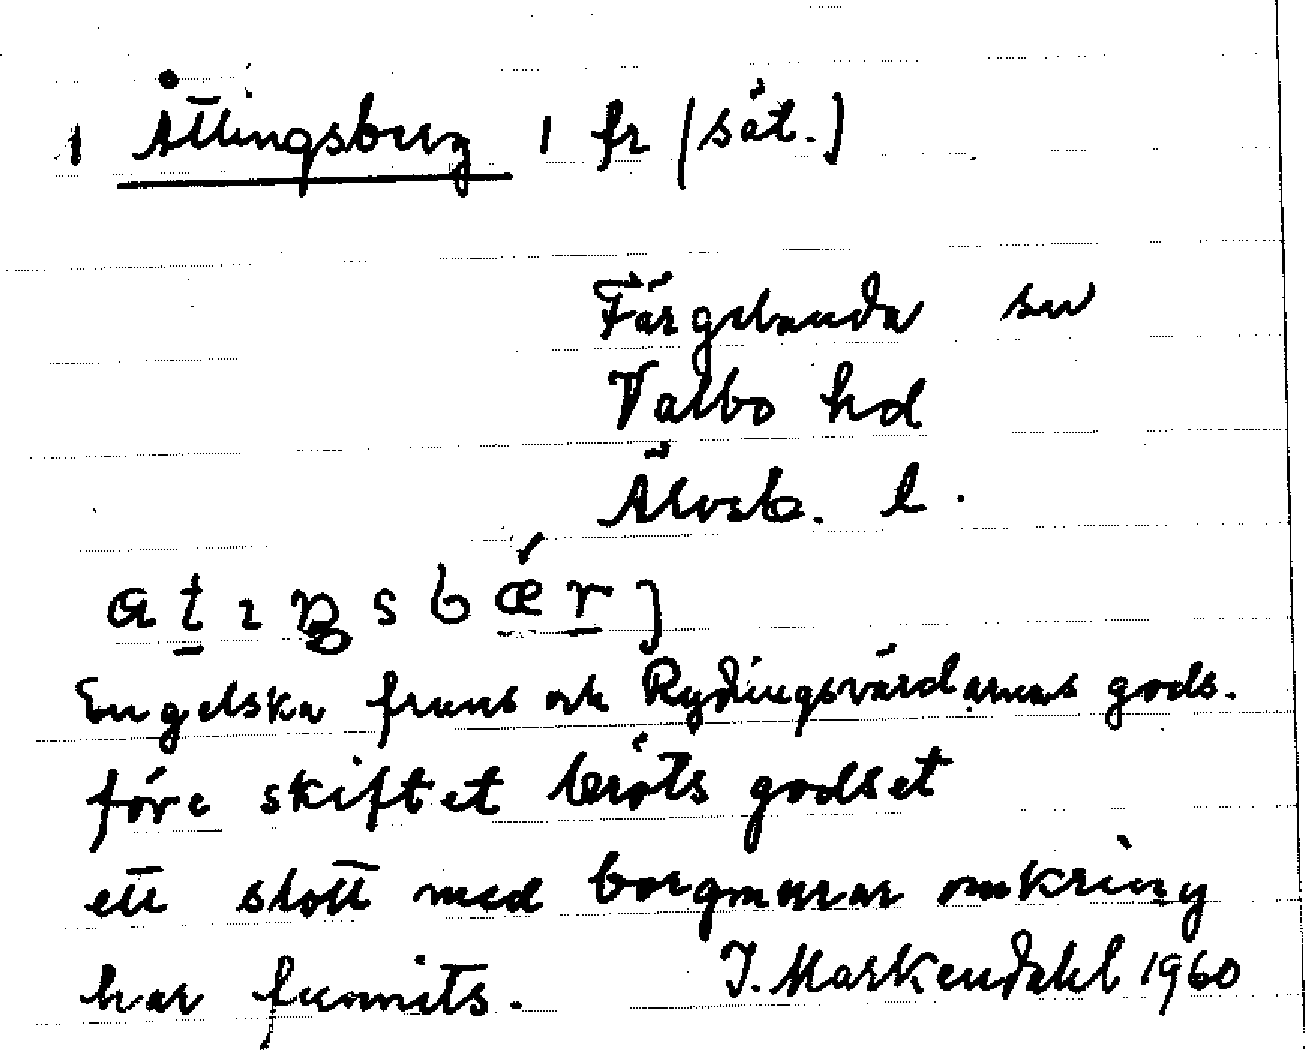 1 Åttingsberg 1 fr (sät.)
Färgelanda sn
Valbo hd
Älvsb. l.
Engelska fruns och Rydingsvärdarnas gods.
före skiftet bröts godset
ett slott med borgmurar omkring
har funnits. J. Markendahl 1960